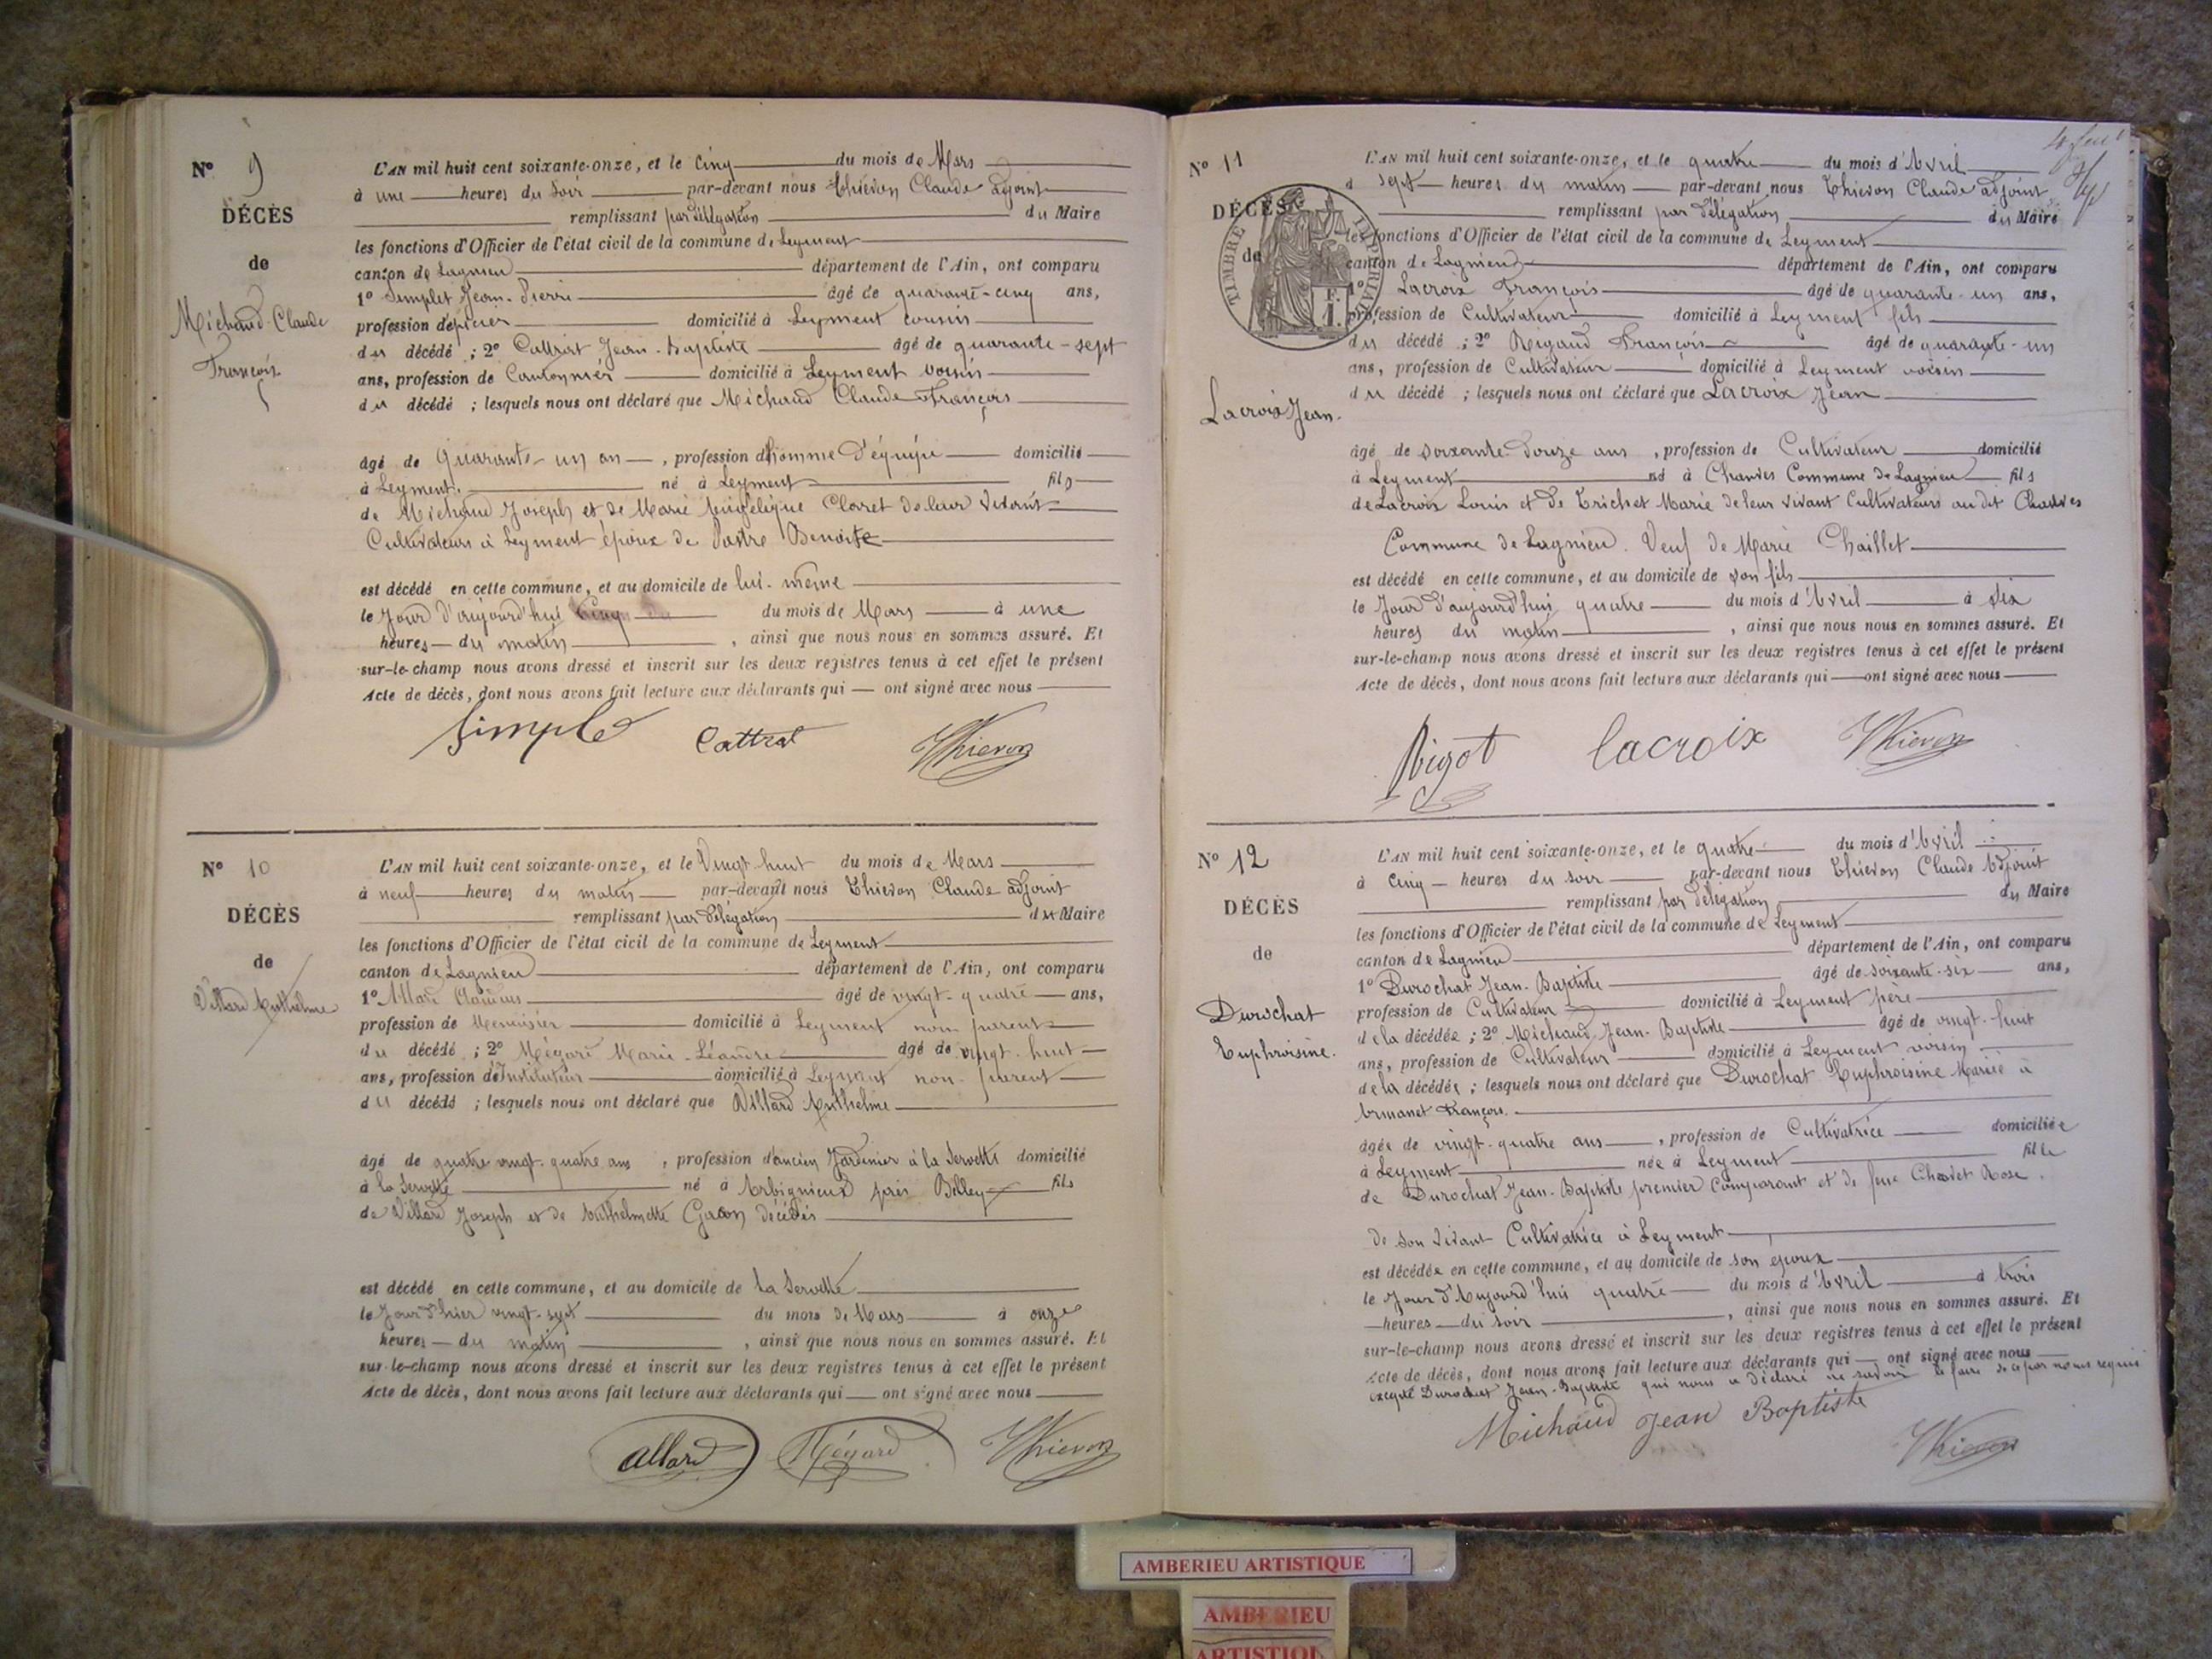 N° 9
DÉCÈS
de
Michaud Claude
François
L'AN mil huit cent soixante-onze, et le Cinq du mois de Mars
à une heures du Soir par-devant nous Thievon Claude Adjoint
remplissant par délégation du Maire
les fonctions d'Officier de l'état civil de la commune de Leyment
canton de Lagnieu département de l'Ain, ont comparu
1° Simplet Jean-Pierre âgé de quarante-cinq ans,
profession d'épicier domicilié à Leyment cousin
du décédé ; 2° Jean-Baptiste âgé de quarante-sept
ans, profession de Cantonnier domicilié à Leyment voisin
du décédé ; lesquels nous ont déclaré que Michaud Claude François
âgé de Quarante-un an, profession d'homme d'équipe domicilié
à Leyment né à Leyment fils
de Michaud Joseph et de Marie Angélique Claret de leur vivant
Cultivateurs à Leyment époux de Benoite
est décédé en cette commune, et au domicile de lui-même
le Jour d'aujourd'hui Cinq du mois de Mars à une
heures du matin, ainsi que nous nous en sommes assuré. Et
sur-le-champ nous avons dressé et inscrit sur les deux registres tenus à cet effet le présent
Acte de décès, dont nous avons fait lecture aux déclarants qui ont signé avec nous
Simple Cattrat Thievon
N° 10
DÉCÈS
de
Villard Anthelme
L'AN mil huit cent soixante-onze, et le Vingt huit du mois de Mars
à neuf heures du matin par-devant nous Thievon Claude adjoint
remplissant par délégation du Maire
les fonctions d'Officier de l'état civil de la commune de Leyment
canton de Lagnieu département de l'Ain, ont comparu
1° Allard Claudius âgé de vingt-quatre ans,
profession de Menuisier domicilié à Leyment non parent
du décédé ; 2° Mégard Marie-Léandre âgé de vingt-huit
ans, profession d'Instituteur domicilié à Leyment non-parent
du décédé ; lesquels nous ont déclaré que Villard Anthelme
âgé de quatre vingt-quatre ans, profession d'ancien Jardinier à la Servette domicilié
à la Servette né à Arbignieux près Belley fils
de Villard Joseph et de Anthelmette décédés
est décédé en cette commune, et au domicile de la Servette
le Jour d'hier vingt-sept du mois de Mars à onze
heures du matin, ainsi que nous nous en sommes assuré. Et
sur-le-champ nous avons dressé et inscrit sur les deux registres tenus à cet effet le présent
Acte de décès, dont nous avons fait lecture aux déclarants qui ont signé avec nous
Allard Mégard Thievon
N° 11
DÉCÈS
de
TIMBRE IMPÉRIAL
F. 1.
Lacroix Jean.
L'AN mil huit cent soixante-onze, et le quatre du mois d'Avril
à sept heures du matin par-devant nous Thievon Claude adjoint
remplissant par délégation du Maire
les fonctions d'Officier de l'état civil de la commune de Leyment
canton de Lagnieu département de l'Ain, ont comparu
1° Lacroix François âgé de quarante-un ans,
profession de Cultivateur domicilié à Leyment fils
du décédé ; 2° François âgé de quarante-un
ans, profession de Cultivateur domicilié à Leyment voisin
du décédé ; lesquels nous ont déclaré que Lacroix Jean
âgé de soixante-douze ans, profession de Cultivateur domicilié
à Leyment né à Charves Commune de Lagnieu fils
de Lacroix Louis et de Trichet Marie de leur vivant Cultivateurs au dit Charves
Commune de Lagnieu. Veuf de Marie Chaillet
est décédé en cette commune, et au domicile de son fils
le Jour d'aujourd'hui quatre du mois d'Avril à six
heures du matin, ainsi que nous nous en sommes assuré. Et
sur-le-champ nous avons dressé et inscrit sur les deux registres tenus à cet effet le présent
Acte de décès, dont nous avons fait lecture aux déclarants qui ont signé avec nous
lacroix Thievon
N° 12
DÉCÈS
de
Durochat
Euphroisine.
L'AN mil huit cent soixante-onze, et le quatre du mois d'Avril
à Cinq heures du soir par-devant nous Thievon Claude Adjoint
remplissant par délégation du Maire
les fonctions d'Officier de l'état civil de la commune de Leyment
canton de Lagnieu département de l'Ain, ont comparu
1° Durochat Jean-Baptiste âgé de soixante-six ans,
profession de Cultivateur domicilié à Leyment père
de la décédée ; 2° Michaud Jean-Baptiste âgé de vingt-huit
ans, profession de Cultivateur domicilié à Leyment voisin
de la décédée ; lesquels nous ont déclaré que Durochat Euphroisine Mariée à
Armanet François.
âgée de vingt-quatre ans, profession de Cultivatrice domiciliée
à Leyment née à Leyment fille
de Durochat Jean-Baptiste premier Comparant et de feue Rose
de son vivant Cultivatrice à Leyment
est décédée en cette commune, et au domicile de son époux
le Jour d'Aujourd'hui quatre du mois d'Avril à trois
heures du soir, ainsi que nous nous en sommes assuré. Et
sur-le-champ nous avons dressé et inscrit sur les deux registres tenus à cet effet le présent
Acte de décès, dont nous avons fait lecture aux déclarants qui ont signé avec nous
excepté Durochat Jean-Baptiste qui nous a déclaré ne savoir le faire de ce par nous requis
Michaud Jean Baptiste
Thievon
AMBERIEU ARTISTIQUE
AMBERIEU
ARTISTIQU